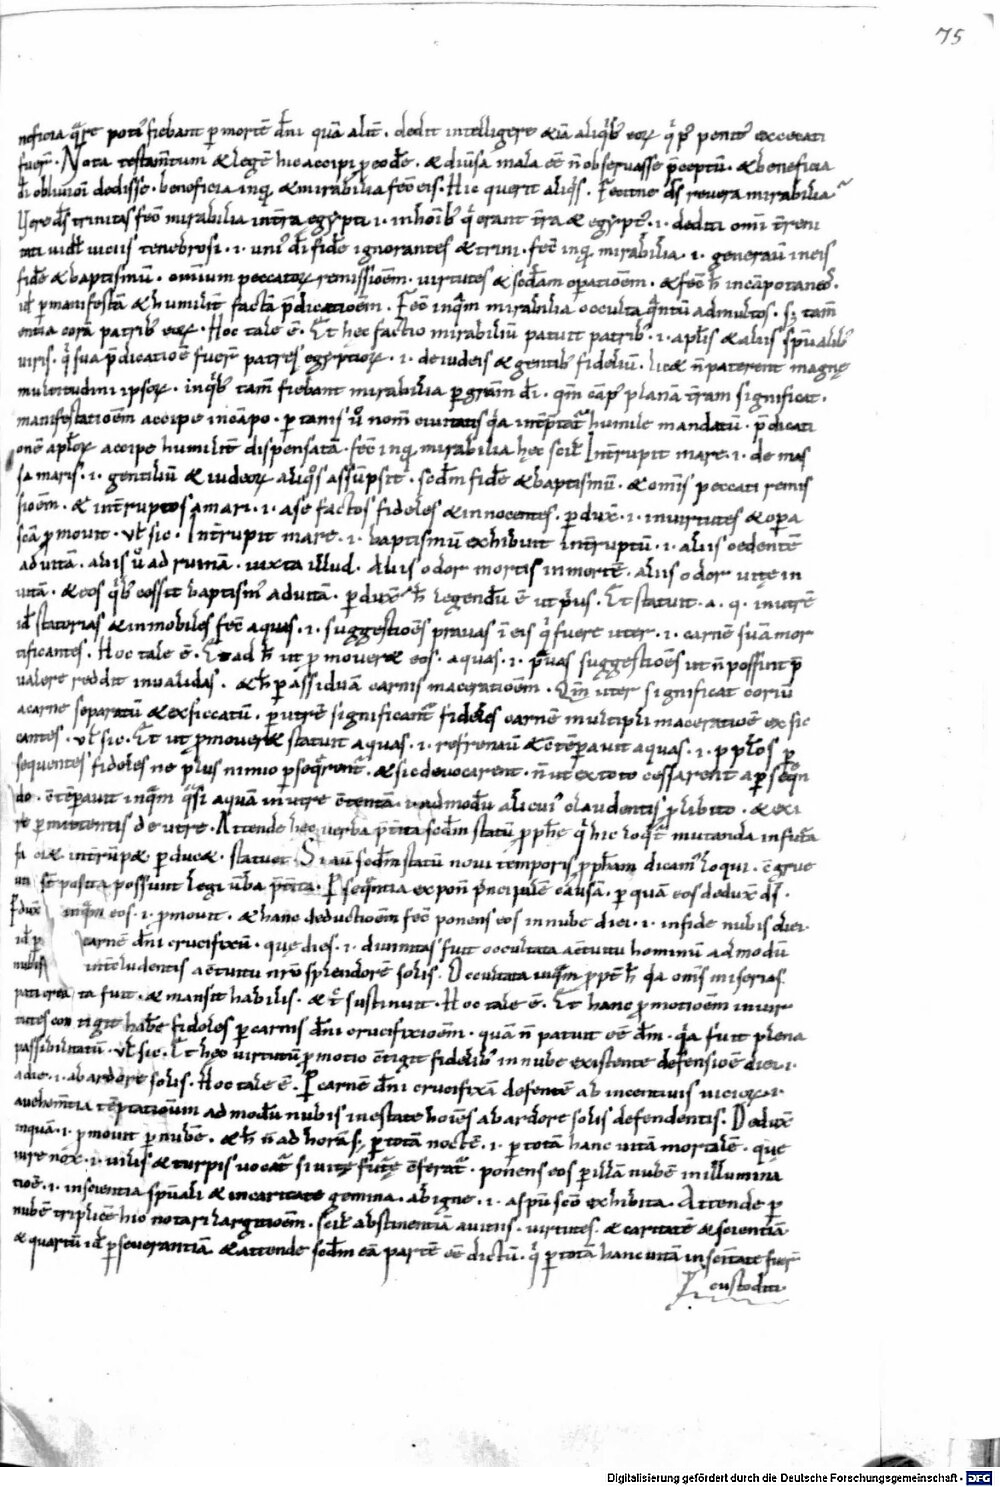 75
neficia q̄re poti᾽ fiebant p mortē dn̄i quā alit̄. dedit intelligere & iā aliq̄b᾽ eoꝝ q̄ p᾽ penit᾽ excecati
fuer̄. Nota testam̄tum & legē hic accipi p eodē. & diu̅sa mala eē n̄ observasse p̄ceptū. & beneficia
di oblivioni dedisse. beneficia inq̄ & mirabilia fec̄ eis. Hic querit aliq̄s. Fecitne ds̄ revera mirabilia
Vere ds̄ trinitas fec̄ mirabilia int̄ra egypti .i. in hoīb᾽ q̄ erant t̄ra & egypt᾽ .i. dediti om̄i t̄reni
tati videl̄ viciis tenebrosi .i. uni᾽ di fidē ignorantes & trini. fec̄ inq̄ mirabilia .i. generavit in eis
fidē & baptismū. omnium peccatoꝝ remissionē. virtutes & scd̄am opationē. & fec̄ h̄ in cāpo taneos.
id p manifestā & humilit̄ factā p̄dicationē. Fec̄ inq̄m mirabilia occulta q̄ntū ad multos. s; tam̄
entia corā patrib᾽ eoꝝ. Hoc tale ē. Et hec factio mirabiliū patuit patrib᾽ .i. apl̄is & aliis sp̄ualib᾽
viris. q̄ sua p̄dicationē fuer̄ patres egyptioꝝ .i. de iudeis & gentib᾽ fideliū. lic& n̄ paterent magnę
multitudini ipsoꝝ. in q̄b᾽ tam̄ fiebant mirabilia p grām di. q̄m cāp᾽ planā t̄ram significat.
manifestationē accipe in cāpo. p tanis ū nom̄ civitatis q̄a int̄ptat̄ humile mandatū. p̄dicati
onē apl̄oꝝ accipe humilit̄ dispensatā. fec̄ inq̄ mirabilia hec scil̄ Int̄rupit mare .i. de mas
sa maris .i. gentiliū & iudeoꝝ aliq̄s assūpsit. scd̄m fidē & baptismū. & om̄is peccati remis
sionē. & int̄ruptos a mari .i. a se factos fideles & innocentes. p dux̄ .i. in virtutes & opa
scā p movit. vl̄ sic. Int̄rupit mare .i. baptismū exhibuit int̄ruptū .i. aliis cedentē
ad vitā. aliis ū ad ruinā. iuxta illud. Aliis odor mortis in mortē. aliis odor vitę in
vitā. & eos q̄b᾽ cessit baptism᾽ ad vitā. p dux̄ h̄ legendū ē ut p̄us. Et statuit .a. q. in utrē
id statorias & inmobiles fec̄ aquas .i. suggestiones pravas ī eis q̄ fuere uter .i. carnē suā mor
tificantes. Hoc tale ē. Et ad h̄ ut p mover& eos. aquas .i. pvas suggestiones ut n̄ possint p̄
valere reddit invalidas. & h̄ p assiduā carnis macerationē. Qm̄ uter significat coriū
a carne separatū & exsiccatū. p utrē significant᾽ fideles carnē multiplici maceratione exsic
cantes. vl̄ sic. Et ut p mover& statuit aquas .i. refrenavit & cōtēpavit aquas .i. p pl̄os p
sequentes fideles ne plus nimio p seq̄rent᾽. & sic devocarent. n̄ ut ex toto cessarent a p seq̄n
do. cōtēpavit inq̄m q̄si aquā in utre cōtentā .i. ad modū alicui᾽ claudentis p libito. & exi
re p mittentis de utre. Attende hec verba p̄t̄ita scd̄m statū p ph̄e q̄ hic loq̄t᾽ mutanda in futura
int̄rūp& p duc&. statuet Si aū scd̄m statū novi temporis p ph̄am dicam᾽ loqui. cōgrue
st̄ posita possunt legi v̄ba p̄t̄ita. P seq̄ntia expon̄ p̄ncipalē causā. p quā eos dedux̄ ds̄.
inq̄m eos .i. p movit. & hanc deductionē fec̄ ponens eos in nube diei .i. in fide nubis diei.
id p carnē dn̄i crucifixā. quę dies .i. divinitas fuit occultata a ētuitu hominū ad modū
nubis int̄cludentis a ētuitu nr̄o splendorē solis. Occultata inq̄m pp̄t h̄ q̄a om̄is miserias
pati creata fuit. & mansit habilis. & t̄ sustinuit. Hoc tale ē. Et hanc p motionē in vir
tutes contigit habē fideles p carnis dn̄i crucifixionē. quā n̄ patuit eē dm̄. q̄a fuit plena
passibilitatū. vl̄ sic. Et hec virtutū p motio cōtigit fidelib᾽ in nube existente defensione diei .i.
a die .i. ab ardore solis. Hoc tale ē. P carnē dn̄i crucifixā defente ab incentivis vicioꝝ .i.
a vehem̄tia tēptationum ad modū nubis in estate hoies ab ardore solis defendentis. Dedux̄
inquā .i. p movit p nubē. & h̄ n̄ ad horā s; p totā noctē .i. p totā hanc vitā mortalē. que
iure nox .i. vilis & turpis vocat᾽ si vitę futurę cōferat᾽. ponens eos p illā nubē in illumina
tione .i. in scientia sp̄uali & in caritate gemina. ab igne .i. a sp̄u scō exhibita. Attende p
nubē triplicē hic notari largitionē. scil̄ abstinentiā a vitiis. virtutes & caritatē & scientiā
& quartū id p severantiā. & attende scd̄m eā partē eē dictū. q̄ p totā hanc vitā in sc̄itate fuer̄
custoditi.
Digitalisierung gefördert durch die Deutsche Forschungsgemeinschaft - DFG